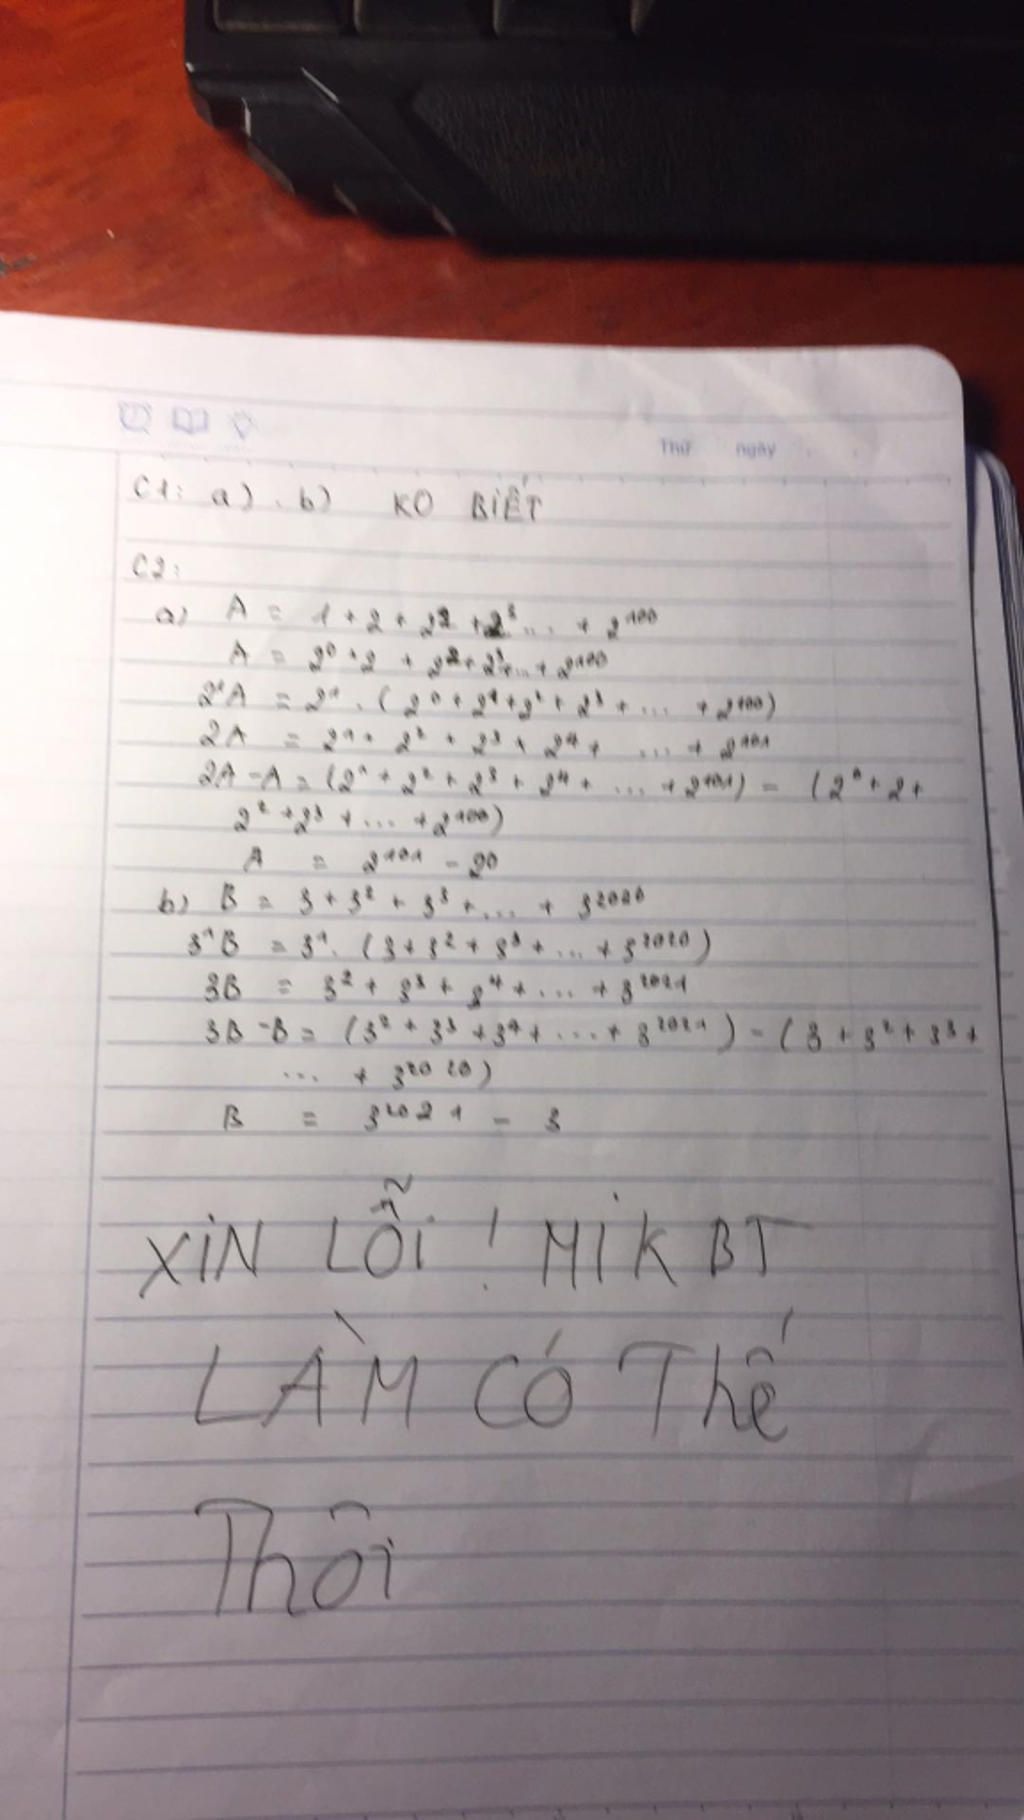 Thứ ngày
C1: a) . b) KO BIẾT
C2:
a) A = 1 + 2 + 2² + 2³ ... + 2¹⁰⁰
A = 2⁰ + 2 + 2² + 2³ + ... + 2¹⁰⁰
2¹A = 2¹ . ( 2⁰ + 2¹ + 2² + 2³ + ... + 2¹⁰⁰ )
2A = 2¹ + 2² + 2³ + 2⁴ + ... + 2¹⁰¹
2A - A = (2¹ + 2² + 2³ + 2⁴ + ... + 2¹⁰¹) - (2⁰ + 2 +
2² + 2³ + ... + 2¹⁰⁰)
A = 2¹⁰¹ - 2⁰
b) B = 3 + 3² + 3³ + ... + 3²⁰²⁰
3¹B = 3¹. (3 + 3² + 3³ + ... + 3²⁰²⁰)
3B = 3² + 3³ + 3⁴ + ... + 3²⁰²¹
3B - B = (3² + 3³ + 3⁴ + ... + 3²⁰²¹) - (3 + 3² + 3³ +
... + 3²⁰²⁰)
B = 3²⁰²¹ - 3
XIN LỖI ! MİK BT
LÀM CÓ Thế
Thôi